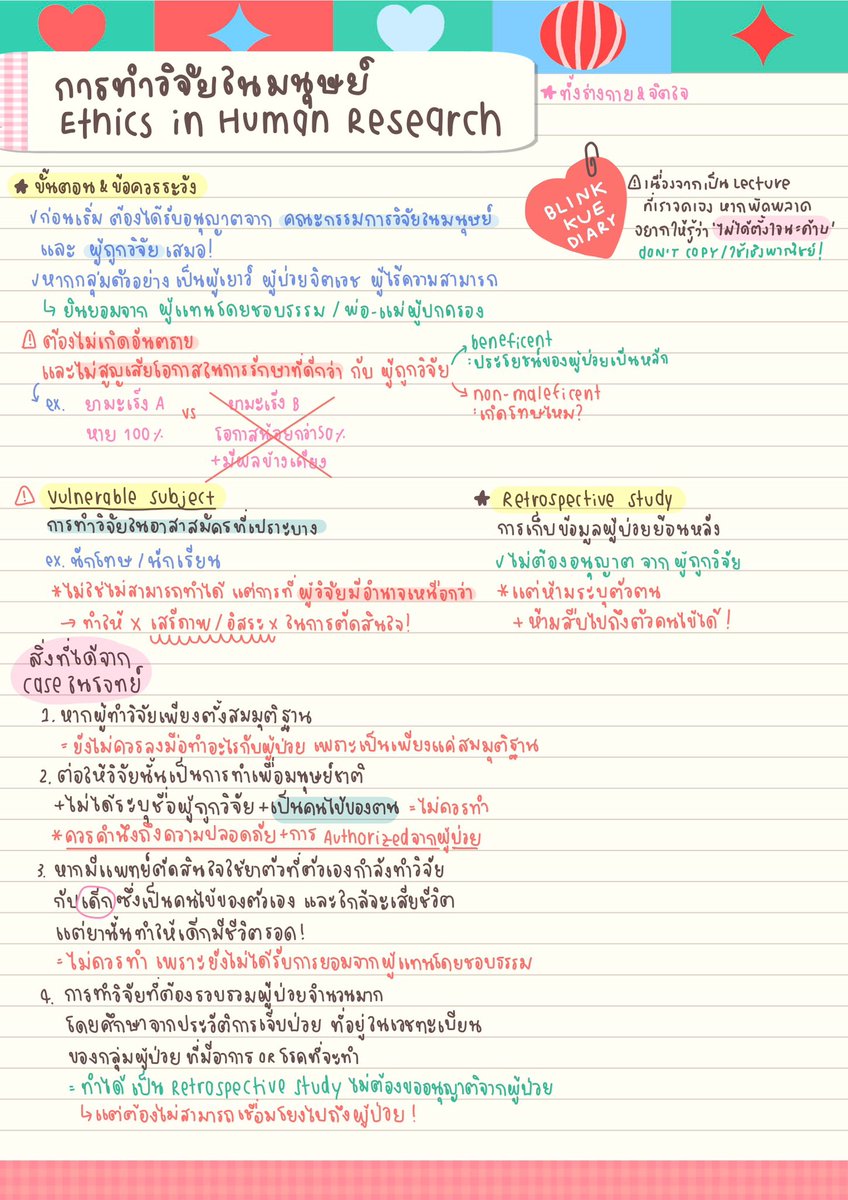 การทำวิจัยในมนุษย์
Ethics in Human Research
★ ทั้งร่างกาย & จิตใจ
BLINK
KUE
DIARY
⚠ เนื่องจากเป็น Lecture
ที่เราจดเอง หากผิดพลาด
อยากให้รู้ว่า "ไม่ได้ตั้งใจนะค้าบ"
DON'T COPY / ใช้เชิงพาณิชย์!
★ ขั้นตอน & ข้อควรระวัง
✓ ก่อนเริ่ม ต้องได้รับอนุญาตจาก คณะกรรมการวิจัยในมนุษย์
และ ผู้ถูกวิจัย เสมอ!
✓ หากกลุ่มตัวอย่าง เป็นผู้เยาว์ ผู้ป่วยจิตเวช ผู้ไร้ความสามารถ
↳ ยินยอมจาก ผู้แทนโดยชอบธรรม / พ่อ-แม่ผู้ปกครอง
⚠ ต้องไม่เกิดอันตราย
และไม่สูญเสียโอกาสในการรักษาที่ดีกว่า กับ ผู้ถูกวิจัย
beneficent
: ประโยชน์ของผู้ป่วยเป็นหลัก
non-maleficent
: เกิดโทษไหม?
ex. ยามะเร็ง A vs ยามะเร็ง B
หาย 100% โอกาสน้อยกว่า 50%
+ มีผลข้างเคียง
⚠ Vulnerable subject
การทำวิจัยในอาสาสมัครที่เปราะบาง
ex. นักโทษ / นักเรียน
*ไม่ใช่ไม่สามารถทำได้ แต่การที่ ผู้วิจัยมีอำนาจเหนือกว่า
→ ทำให้ x เสรีภาพ / อิสระ x ในการตัดสินใจ!
★ Retrospective study
การเก็บข้อมูลผู้ป่วยย้อนหลัง
✓ ไม่ต้องอนุญาต จาก ผู้ถูกวิจัย
*แต่ห้ามระบุตัวตน
+ ห้ามสืบไปถึงตัวคนไข้ได้!
สิ่งที่ได้จาก
case ในโจทย์
1. หากผู้ทำวิจัยเพียงตั้งสมมุติฐาน
= ยังไม่ควรลงมือทำอะไรกับผู้ป่วย เพราะเป็นเพียงแค่สมมุติฐาน
2. ต่อให้วิจัยนั้นเป็นการทำเพื่อมนุษย์ชาติ
+ไม่ได้ระบุชื่อผู้ถูกวิจัย +เป็นคนไข้ของตน = ไม่ควรทำ
*ควรคำนึงถึงความปลอดภัย+การ Authorizedจากผู้ป่วย
3. หากมีแพทย์ตัดสินใจใช้ยาตัวที่ตัวเองกำลังทำวิจัย
กับเด็กซึ่งเป็นคนไข้ของตัวเอง และใกล้จะเสียชีวิต
แต่ยานั้นทำให้เด็กมีชีวิตรอด!
= ไม่ควรทำ เพราะยังไม่ได้รับการยอมจากผู้แทนโดยชอบธรรม
4. การทำวิจัยที่ต้องรวบรวมผู้ป่วยจำนวนมาก
โดยศึกษาจากประวัติการเจ็บป่วย ที่อยู่ในเวชทะเบียน
ของกลุ่มผู้ป่วย ที่มีอาการ OR โรคที่จะทำ
= ทำได้ เป็น Retrospective study ไม่ต้องขออนุญาติจากผู้ป่วย
↳ แต่ต้องไม่สามารถเชื่อมโยงไปถึงผู้ป่วย!